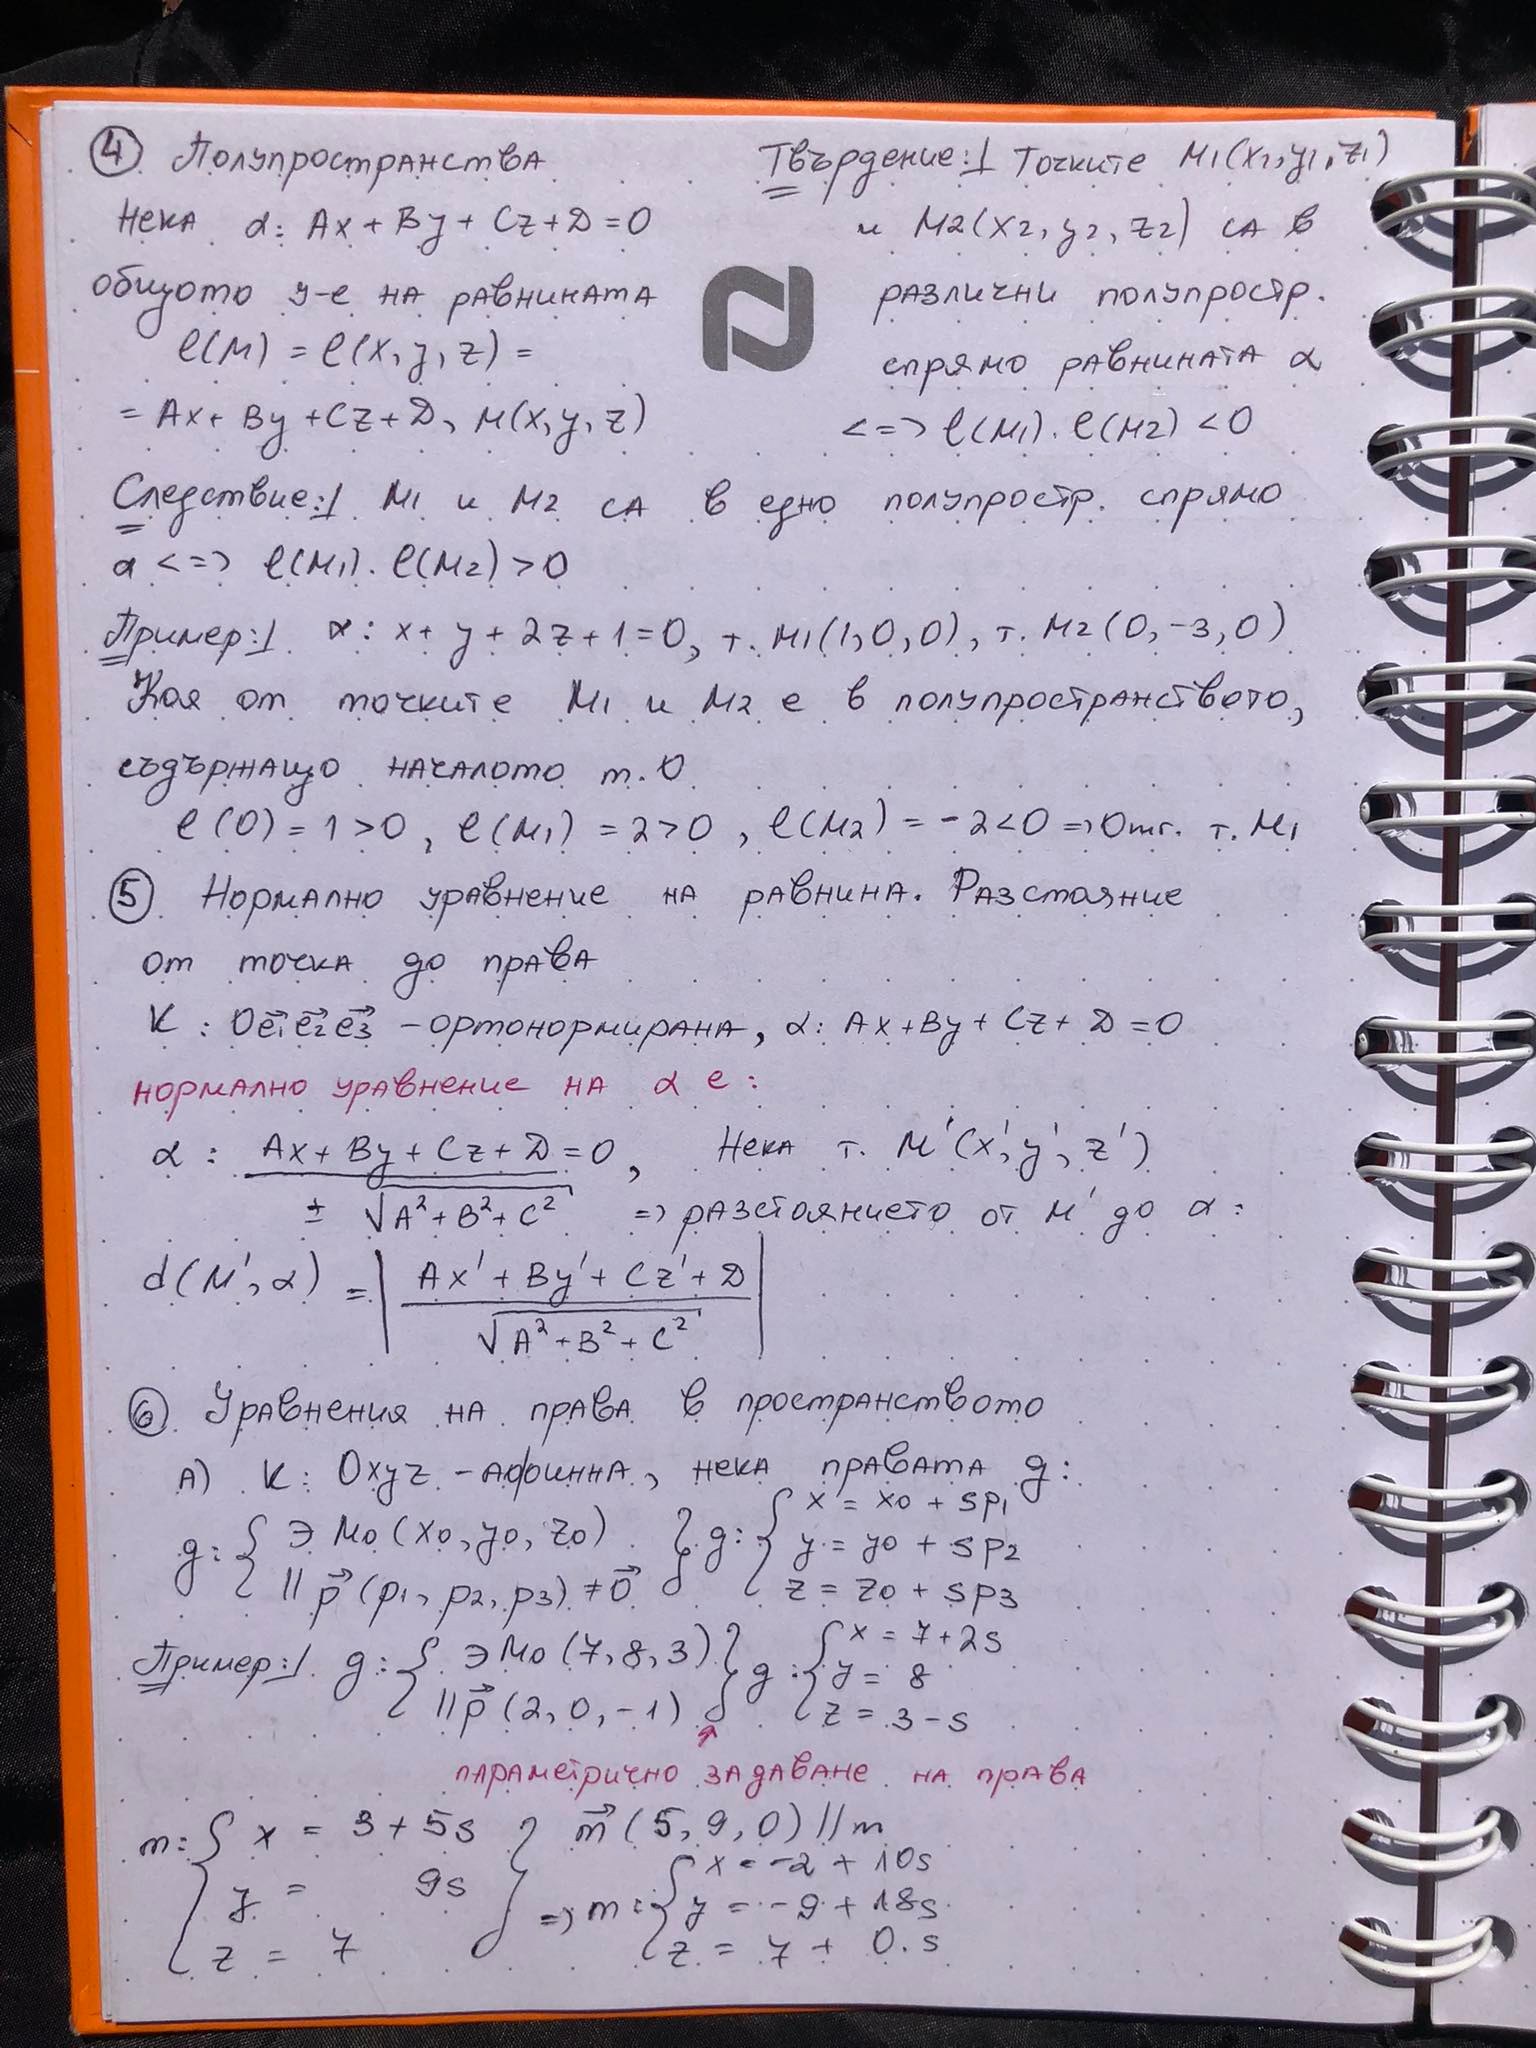 ④ Полупространства
Нека α: Ax + By + Cz + D = 0
общото у-е на равнината
l(M) = l(x, y, z) =
= Ax + By + Cz + D, M(x, y, z)
Твърдение:| Точките M1(x1, y1, z1)
и M2(x2, y2, z2) са в
различни полупростр.
спрямо равнината α
<=> l(M1) . l(M2) < 0
Следствие:| M1 и M2 са в едно полупростр. спрямо
α <=> l(M1) . l(M2) > 0
Пример:| α: x + y + 2z + 1 = 0, т. M1(1, 0, 0), т. M2(0, -3, 0)
Коя от точките M1 и M2 е в полупространството,
съдържащо началото т. O
l(O) = 1 > 0, l(M1) = 2 > 0, l(M2) = -2 < 0 => Отг. т. M1
⑤ Нормално уравнение на равнина. Разстояние
от точка до права
K: Oe⃗1e⃗2e⃗3 - ортонормирана, α: Ax + By + Cz + D = 0
нормално уравнение на α е:
α: (Ax + By + Cz + D)/(± √(A² + B² + C²)) = 0, Нека т. M'(x', y', z')
=> разстоянието от M' до α:
d(M', α) = |(Ax' + By' + Cz' + D)/√(A² + B² + C²)|
⑥ Уравнения на права в пространството
А) K: Oxyz - афинна, нека правата g:
g: { ∋ M0(x0, y0, z0) } g: { x = x0 + sp1
y = y0 + sp2
|| p⃗ (p1, p2, p3) ≠ 0⃗
z = z0 + sp3
Пример:| g: { ∋ M0(7, 8, 3) } g: { x = 7 + 2s
y = 8
|| p⃗ (2, 0, -1)
z = 3 - s
параметрично задаване на права
m: { x = 3 + 5s } m⃗ (5, 9, 0) || m
y = 9s
z = 7
=> m: { x = -2 + 10s
y = -9 + 18s
z = 7 + 0.s